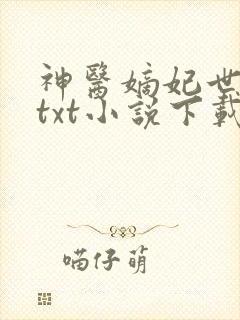 神醫嫡妃世
txt小說下載
喵仔萌